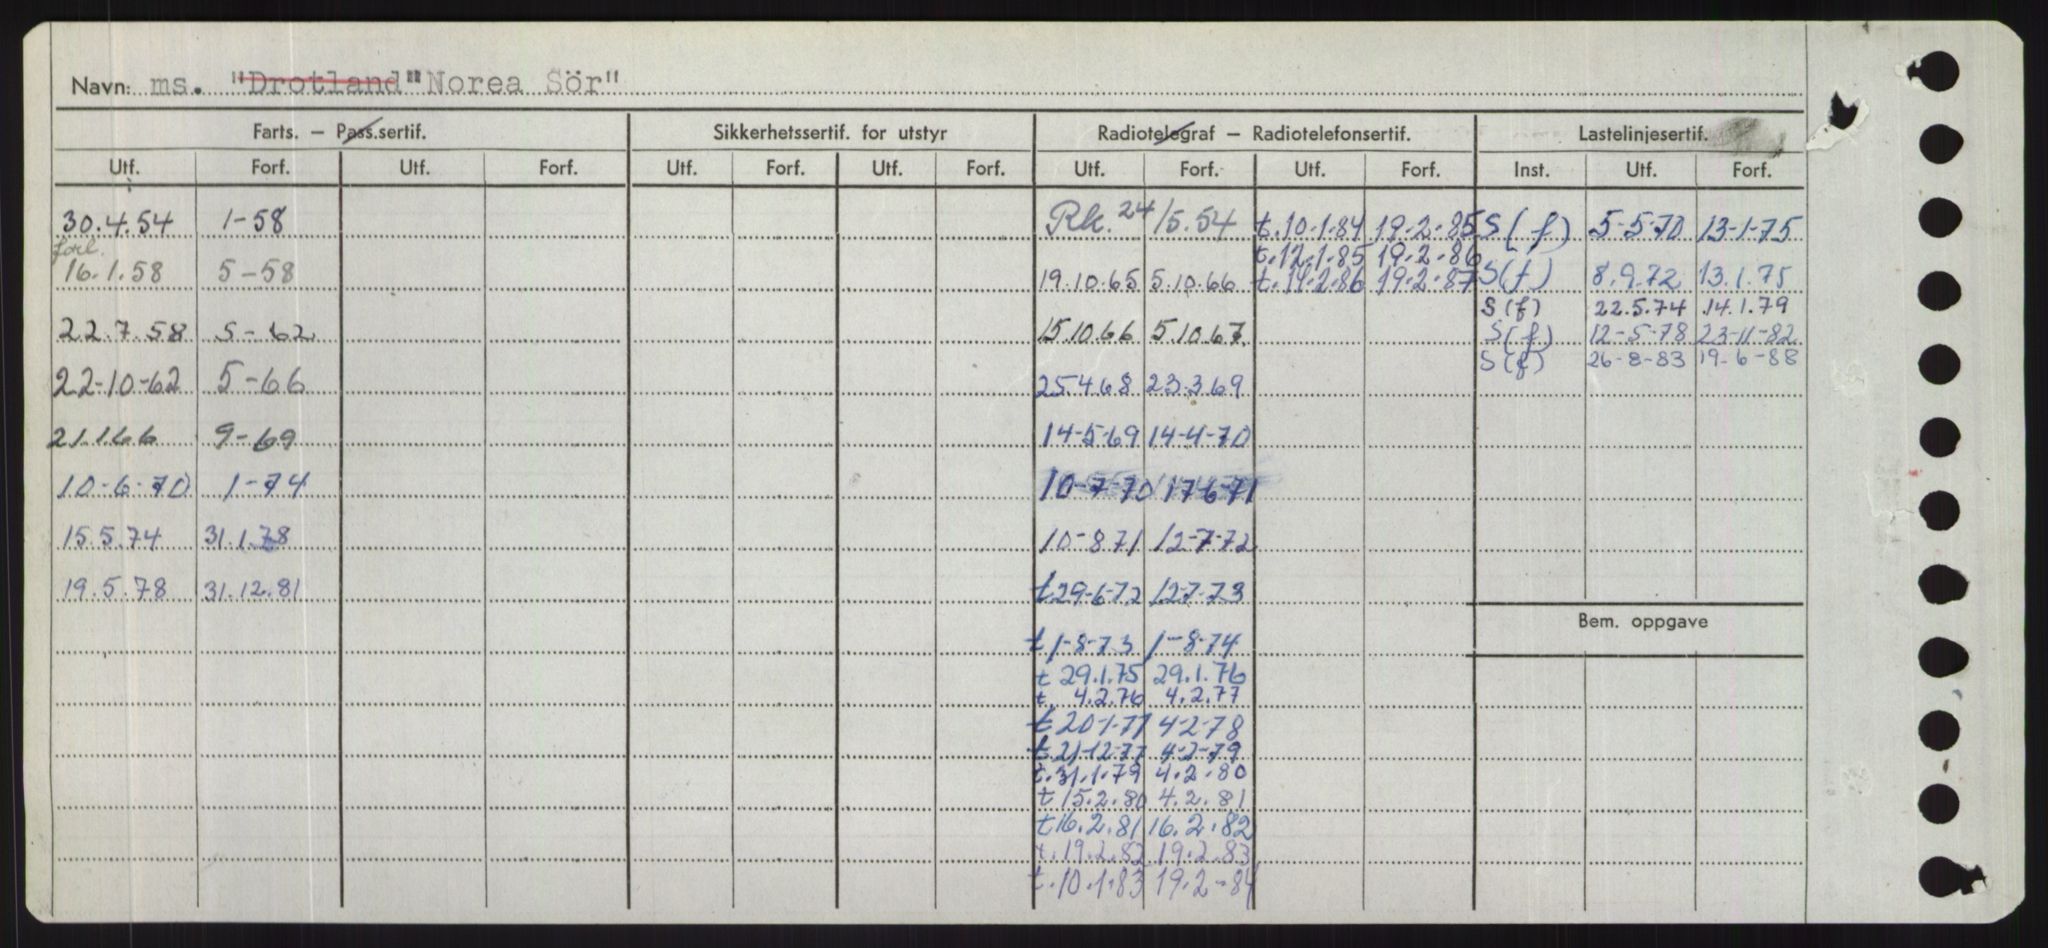 Navn: ms. "Drotland" "Norea Sör"
Farts. – Pass.sertif. Sikkerhetssertif. for utstyr Radiotelegraf – Radiotelefonsertif. Lastelinjesertif.
Utf. Forf. Utf. Forf. Utf. Forf. Utf. Forf. Utf. Forf. Utf. Forf. Inst. Utf. Forf.
30.4.54 1-58 Rk. 24/5.54 t.10.1.84 19.2.85 S(f) 5-5-70 13-1-75
forl. t.12.1.85 19.2.86
16.1.58 5-58 19.10.65 5.10.66 t.14.2.86 19.2.87 S(f) 8.9.72 13.1.75
S(f) 22.5.74 14.1.79
22.7.58 5-62 15.10.66 5.10.67. S(f) 12-5-78 23-11-82
S(f) 26-8-83 19-6-88
22-10-62 5-66 25.4.68 23.3.69
21.1.66 9-69 14-5-69 14-4-70
10-6-70 1-74 10-7-70 17-6-71
15.5.74 31.1.78 10-8.71 12-7-72
19.5.78 31.12.81 t 29-6-72 12-7-73
Bem. oppgave
t 1-8-73 1-8-74
t 29.1.75 29.1.76
t. 4.2.76 4.2.77
t 20-1-77 4-2-78
t.21-12-77 4-2-79
t.31.1.79 4.2.80
t 15.2.80 4.2.81
t 16.2.81 16.2.82
t.19.2.82 19.2.83
t.10.1.83 19.2-84